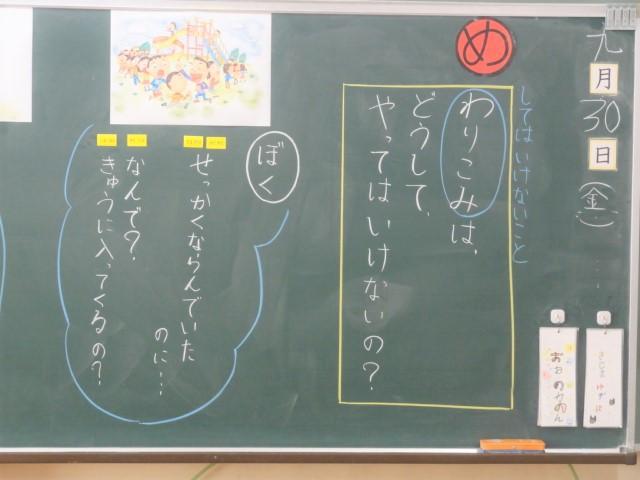 九月30日(金)
め
してはいけないこと
わりこみは、
どうして、
やってはいけないの?
ぼく
せっかくならんでいた
のに…
なんで?
きゅうに入ってくるの?